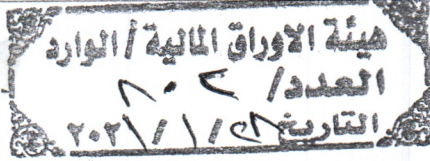 هيئة الاوراق المالية / الوارد
العدد/ ٨٠٢
التاريخ ٢٨/ ١ / ٢٠٢١